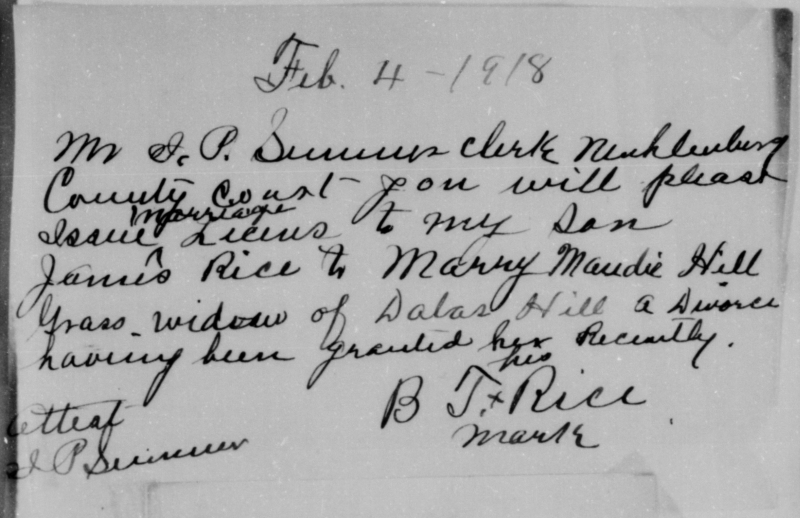 Feb. 4 - 1918
Mr I. P. Summer clerk Mecklenburg
County Court you will please
Issue Marriage Licens to my Son
James Rice to Marry Maudie Hill
Grass-widow of Dalas Hill a Divorce
having been granted her Recently.
his
B T. x Rice
Mark
Attest
I P Summer